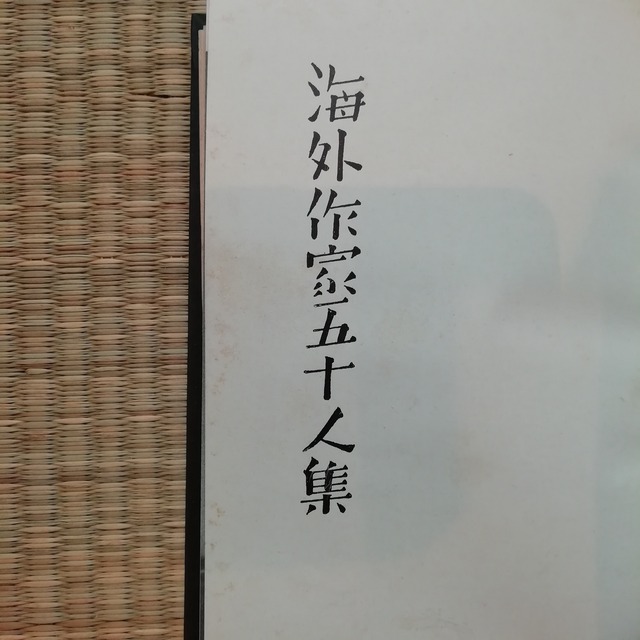 海外作家五十人集